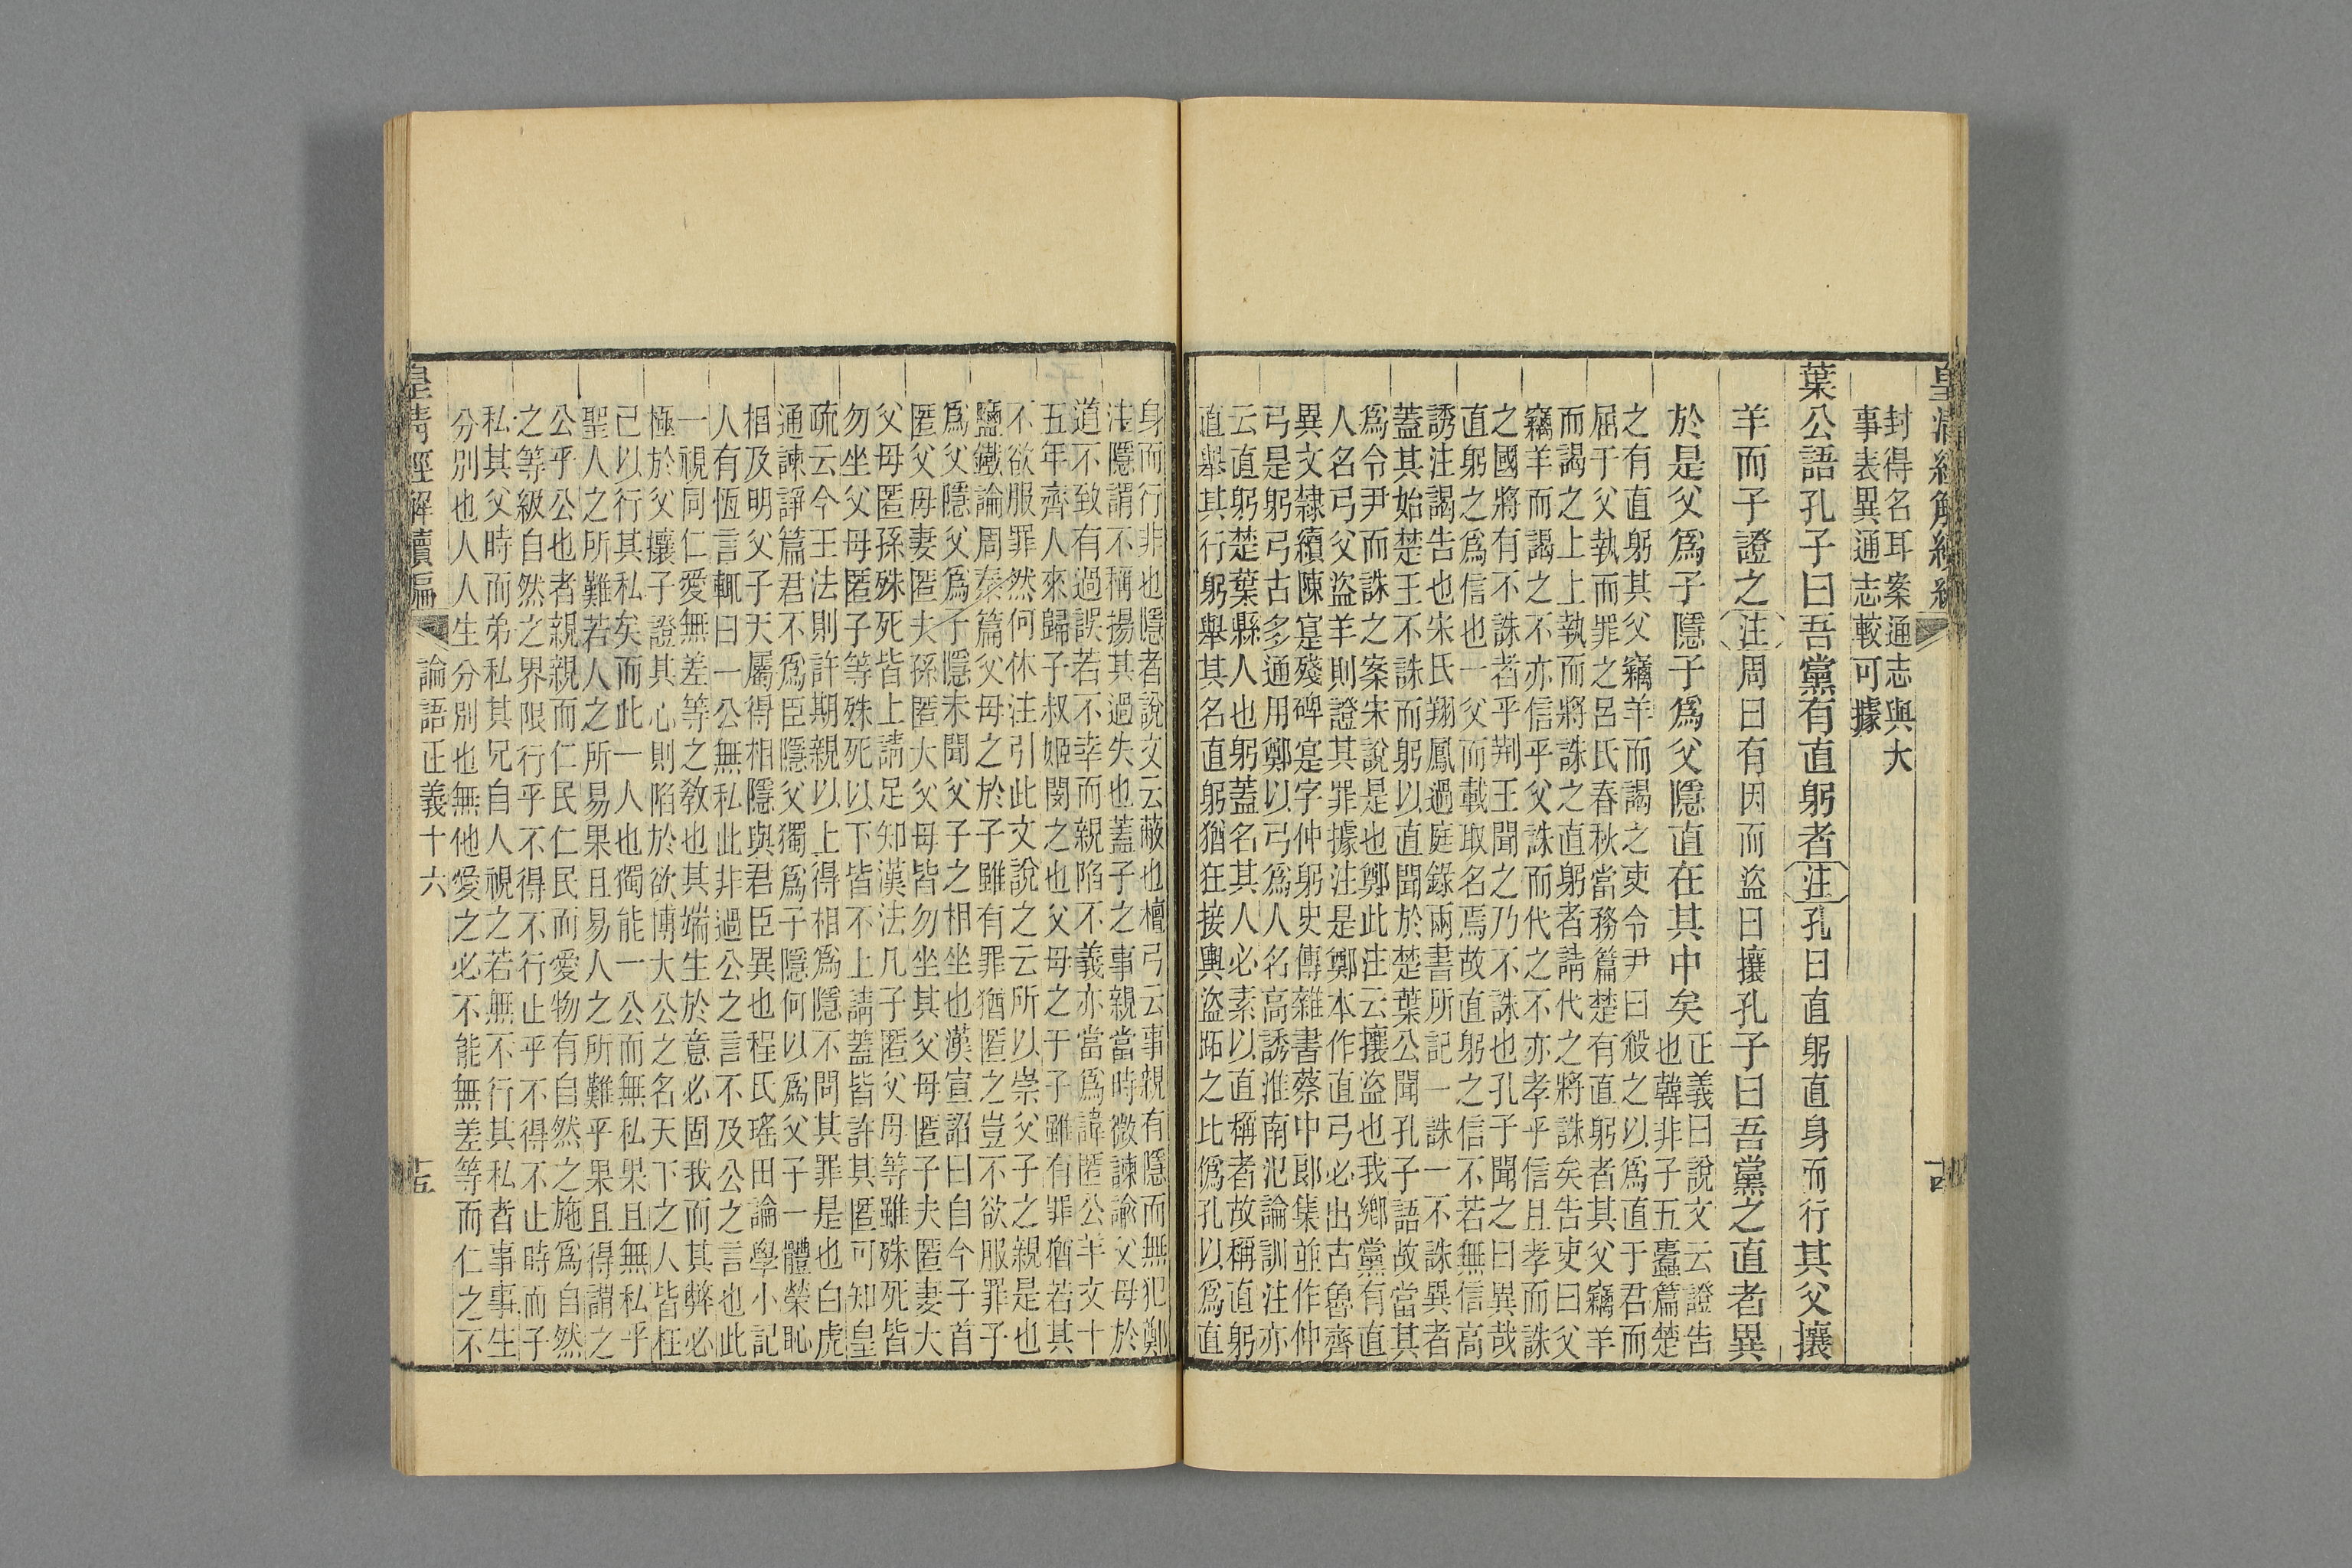 皇清經解續編
封得名耳案通志與大
事表異通志較可據
葉公語孔子曰吾黨有直躬者注孔曰直躬直身而行其父攘
羊而子證之注周曰有因而盜曰攘孔子曰吾黨之直者異
於是父爲子隱子爲父隱直在其中矣
正義曰說文云證告
也韓非子五蠹篇楚
之有直躬其父竊羊而謁之吏令尹曰殺之以爲直于君而
屈于父執而罪之呂氏春秋當務篇楚有直躬者其父竊羊
而謁之上上執而將誅之直躬者請代之將誅矣告吏曰父
竊羊而謁之不亦信乎父誅而代之不亦孝乎信且孝而誅
之國將有不誅者乎荆王聞之乃不誅也孔子聞之曰異哉
直躬之爲信也一父而載取名焉故直躬之信不若無信高
誘注謁告也宋氏翔鳳過庭錄兩書所記一誅一不誅異者
蓋其始楚王不誅而躬以直聞於楚葉公聞孔子語故當其
爲令尹而誅之案宋說是也鄭此注云攘盜也我鄉黨有直
人名弓父盜羊則證其罪據注是鄭本作直弓必出古魯齊
異文隸續陳寔殘碑寔字仲躬史傳雜書蔡中郎集並作仲
弓是躬弓古多通用鄭以弓爲人名高誘淮南氾論訓注亦
云直躬楚葉縣人也躬蓋名其人必素以直稱者故稱直躬
直舉其行躬舉其名直躬猶狂接輿盜跖之比僞孔以爲直
身而行非也隱者說文云蔽也檀弓云事親有隱而無犯鄭
注隱謂不稱揚其過失也蓋子之事親當時微諫諭父母於
道不致有過誤若不幸而親陷不義亦當爲諱匿公羊文十
五年齊人來歸子叔姬閔之也父母之于子雖有罪猶若其
不欲服罪然何休注引此文說之云所以崇父子之親是也
鹽鐵論周秦篇父母之於子雖有罪猶匿之豈不欲服罪子
爲父隱父爲子隱未聞父子之相坐也漢宣詔曰自今子首
匿父母妻匿夫孫匿大父母皆勿坐其父母匿子夫匿妻大
父母匿孫殊死皆上請足知漢法凡子匿父母等雖殊死皆
勿坐父母匿子等殊死以下皆不上請蓋皆許其匿可知皇
疏云今王法則許期親以上得相爲隱不問其罪是也白虎
通諫諍篇君不爲臣隱父獨爲子隱何以爲父子一體榮恥
相及明父子天屬得相隱與君臣異也程氏瑤田論學小記
人有恆言輒曰一公無私此非過公之言不及公之言也此
一視同仁愛無差等之敎也其端生於意必固我而其弊必
極於父攘子證其心則陷於欲博大公之名天下之人皆枉
己以行其私矣而此一人也獨能一公而無私果且無私乎
聖人之所難若人之所易果且易人之所難乎果且得謂之
公乎公也者親親而仁民仁民而愛物有自然之施爲自然
之等級自然之界限行乎不得不行止乎不得不止時而子
私其父時而弟私其兄自人視之若無不行其私者事事生
分別也人人生分別也無他愛之必不能無差等而仁之不
皇清經解續編
論語正義十六
十五